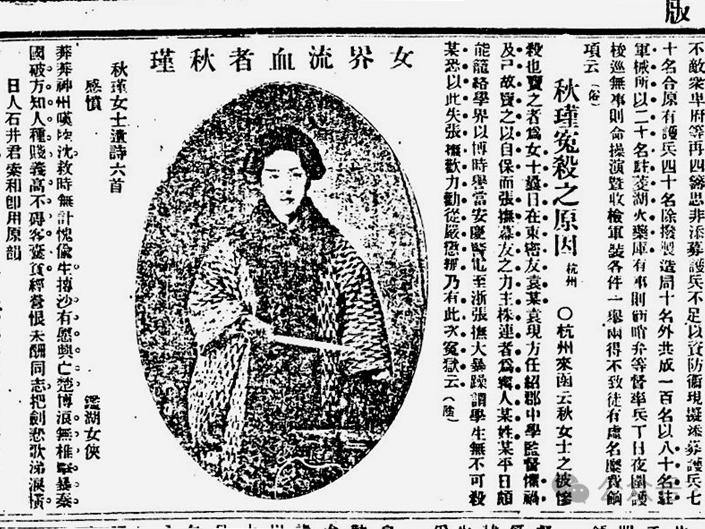 版
不敵衆卑府等再四籌思非添募護兵不足以資防衛現擬添募護兵七
十名合原有護兵四十名除撥製造局十名外共成一百名以八十名駐
軍械所以二十名駐菱湖火藥庫有事則哨弁等督率兵丁日夜圍護
梭巡無事則命操演暨收檢軍裝各件一舉兩得不致徒有虛名糜費餉
項云（俗）
秋瑾冤殺之原因 杭州 〇杭州來函云秋女士之被慘
殺也賣之者爲女士曩日在東密友袁某袁現方任紹郡中學監督懼禍
及己故賣之以自保而張撫幕友之力主株連者爲甯人某姓某平日頗
能籠絡學界以博時譽當安慶警電至浙張撫大暴躁謂學生無不可殺
某恐以此失張撫歡力勸從嚴懲辦乃有此次冤獄云（陸）
女界流血者秋瑾
秋瑾女士遺詩六首
感憤 鑑湖女俠
莽莽神州嘆陸沈救時無計愧偸生摶沙有愿興亡楚博浪無椎擊暴秦
國破方知人種賤義高不碍客囊貧經營恨未酬同志把劍悲歌涕淚橫
日人石井君索和卽用原韻